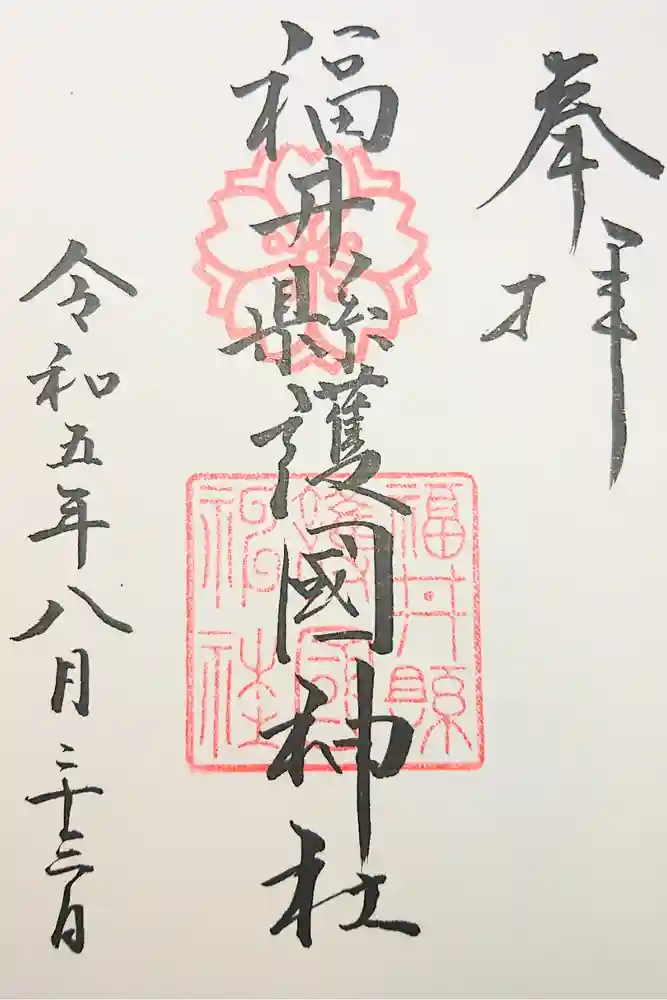 奉拝
福井縣護國神社
福井縣
護國
神社
令和五年八月二十三日